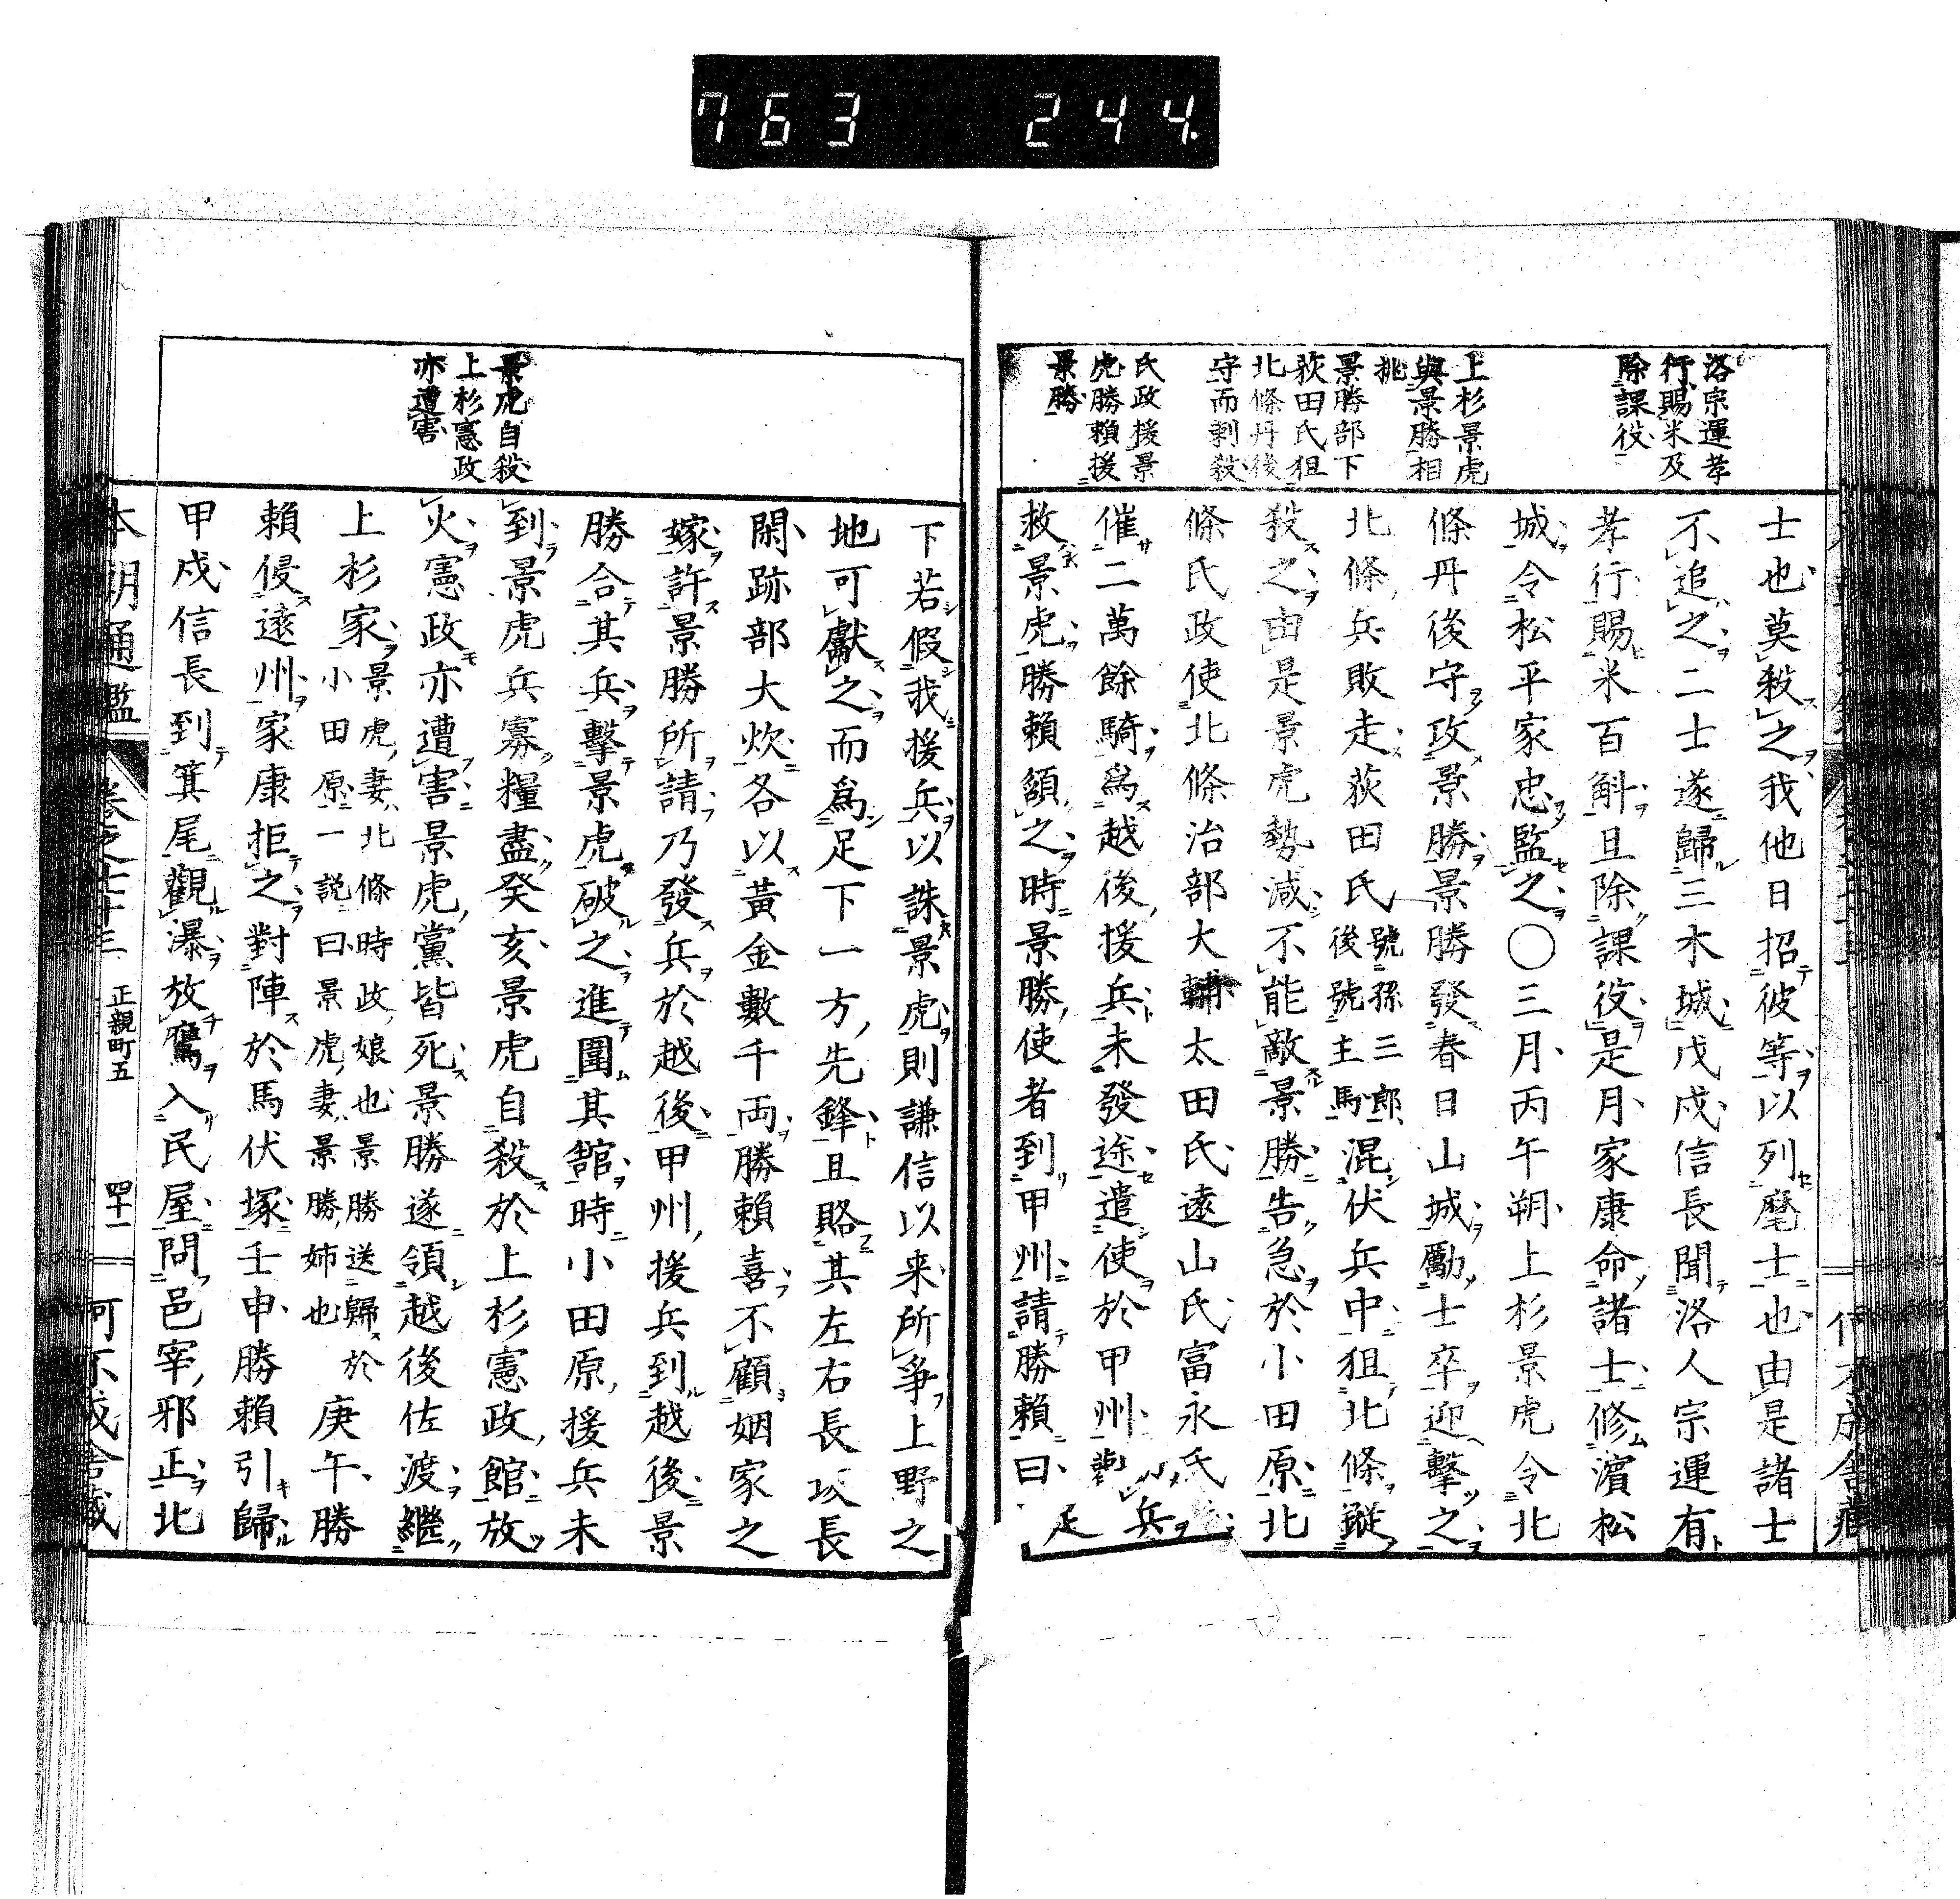 763 244
洛宗運孝
行賜米及
除課役
上杉景虎
與景勝相
挑
景勝部下
荻田氏狙
北條丹後
守而剌殺
氏政援景
虎勝賴援
景勝
士也莫殺之我他日招彼等以列麾士也由是諸士
不追之二士遂歸三木城戊戌信長聞洛人宗運有
孝行賜米百斛且除課役是月家康命諸士修濱松
城令松平家忠監之〇三月丙午朔上杉景虎令北
條丹後守攻景勝景勝發春日山城勵士卒迎擊之
北條兵敗走荻田氏號孫三郎後號主馬混伏兵中狙北條蹤
殺之由是景虎勢減不能敵景勝告急於小田原北
條氏政使北條治部大輔太田氏遠山氏富永氏
催二萬餘騎為越後援兵未發途遣使於甲州兵
救景虎勝賴頷之時景勝使者到甲州請勝賴曰足
景虎自殺
上杉憲政
亦遭害
下若假我援兵以誅景虎則謙信以来所爭上野之
地可獻之而為足下一方先鋒且賂其左右長坂長
閑跡部大炊各以黃金數千両勝賴喜不顧姻家之
嫁許景勝所請乃發兵於越後甲州援兵到越後景
勝合其兵擊景虎破之進圍其舘時小田原援兵未
到景虎兵寡糧盡癸亥景虎自殺於上杉憲政館放
火憲政亦遭害景虎黨皆死景勝遂領越後佐渡繼
上杉家景虎妻北條時政娘也景勝送歸於小田原一說曰景虎妻景勝姉也庚午勝
賴侵遠州家康拒之對陣於馬伏塚壬申勝賴引歸
甲戌信長到箕尾觀瀑放鷹入民屋問邑宰邪正北
本朝通鑑 卷之七十三 正親町五 四十一